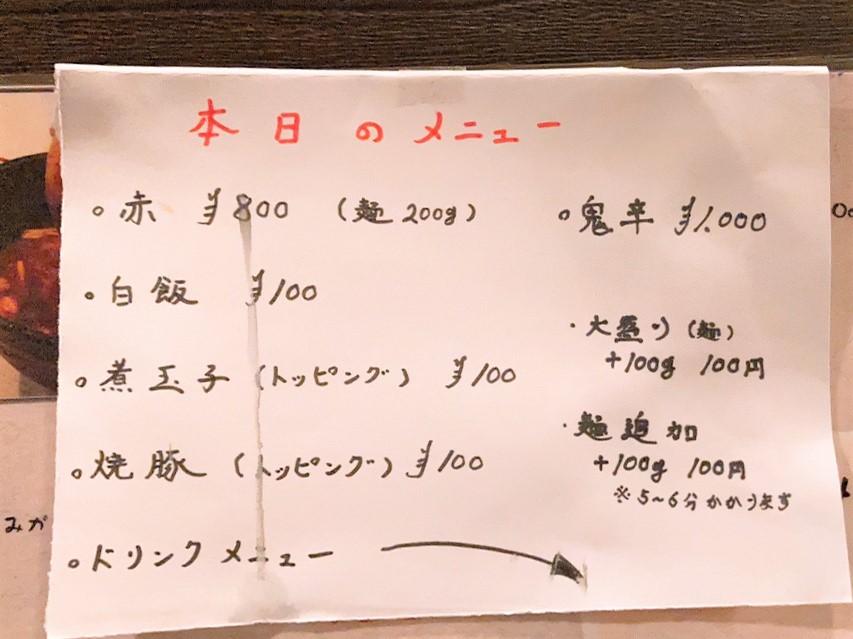 本日のメニュー
○赤 ¥800 (麺200g)
○白飯 ¥100
○煮玉子(トッピング) ¥100
○焼豚(トッピング) ¥100
○ドリンクメニュー
○鬼辛 ¥1.000
・大盛り(麺)
+100g 100円
・麺追加
+100g 100円
※5~6分かかります
みが